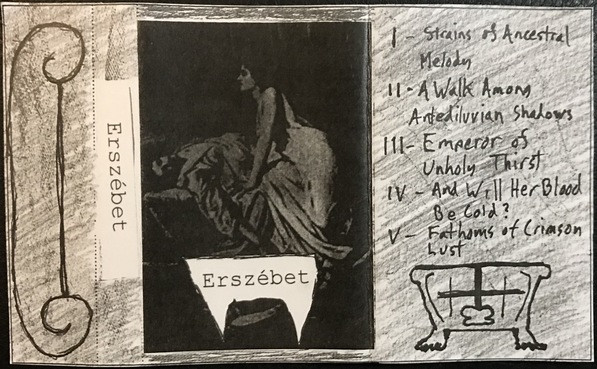 Erszébet
Erszébet
I - Strains of Ancestral
Melody
II - A Walk Among
Antediluvian Shadows
III - Emperor of
Unholy Thirst
IV - And Will Her Blood
Be Cold?
V - Fathoms of Crimson
Lust